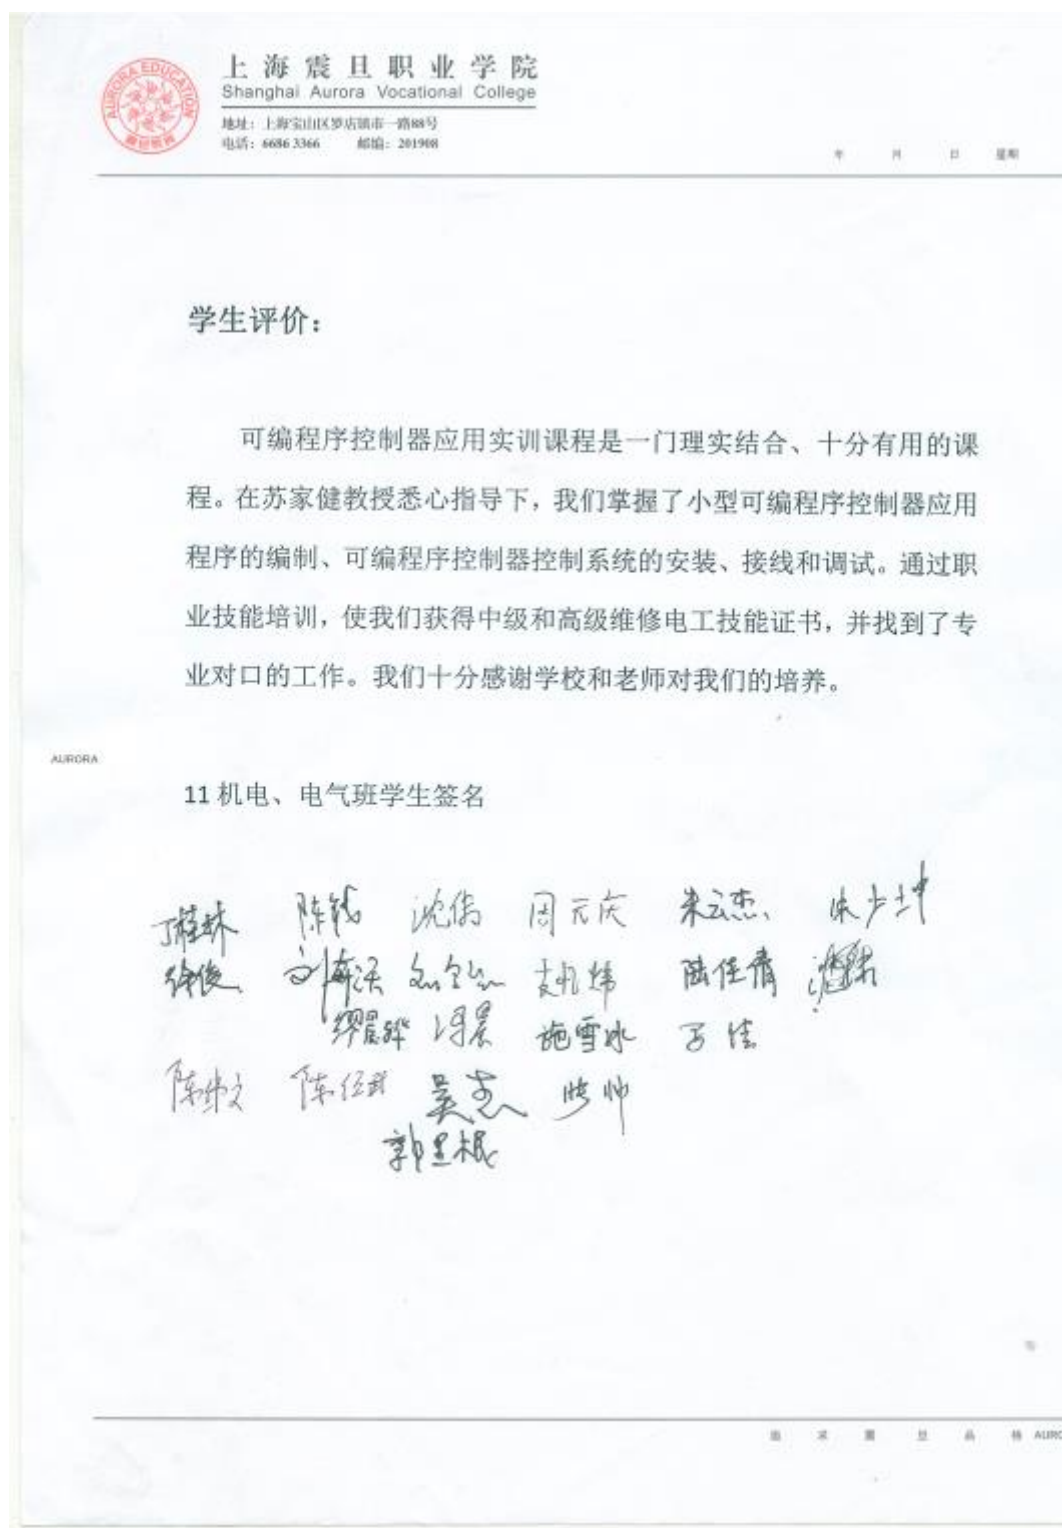 AURORA EDUCATION
震旦教育
上海震旦职业学院
Shanghai Aurora Vocational College
地址：上海宝山区罗店镇市一路88号
电话：6686 3366 邮编：201908
年 月 日 星期
学生评价：
可编程序控制器应用实训课程是一门理实结合、十分有用的课
程。在苏家健教授悉心指导下，我们掌握了小型可编程序控制器应用
程序的编制、可编程序控制器控制系统的安装、接线和调试。通过职
业技能培训，使我们获得中级和高级维修电工技能证书，并找到了专
业对口的工作。我们十分感谢学校和老师对我们的培养。
AURORA
11 机电、电气班学生签名
丁桂林 陈钱 沈伟 周元庆 朱云杰 朱少坤
徐俊 刘海沃 陆佳倩
缪晨骅 冯晨 施雪冰 万佳
陈 吴杰 帅
郭 根
追求震旦品格 AURO